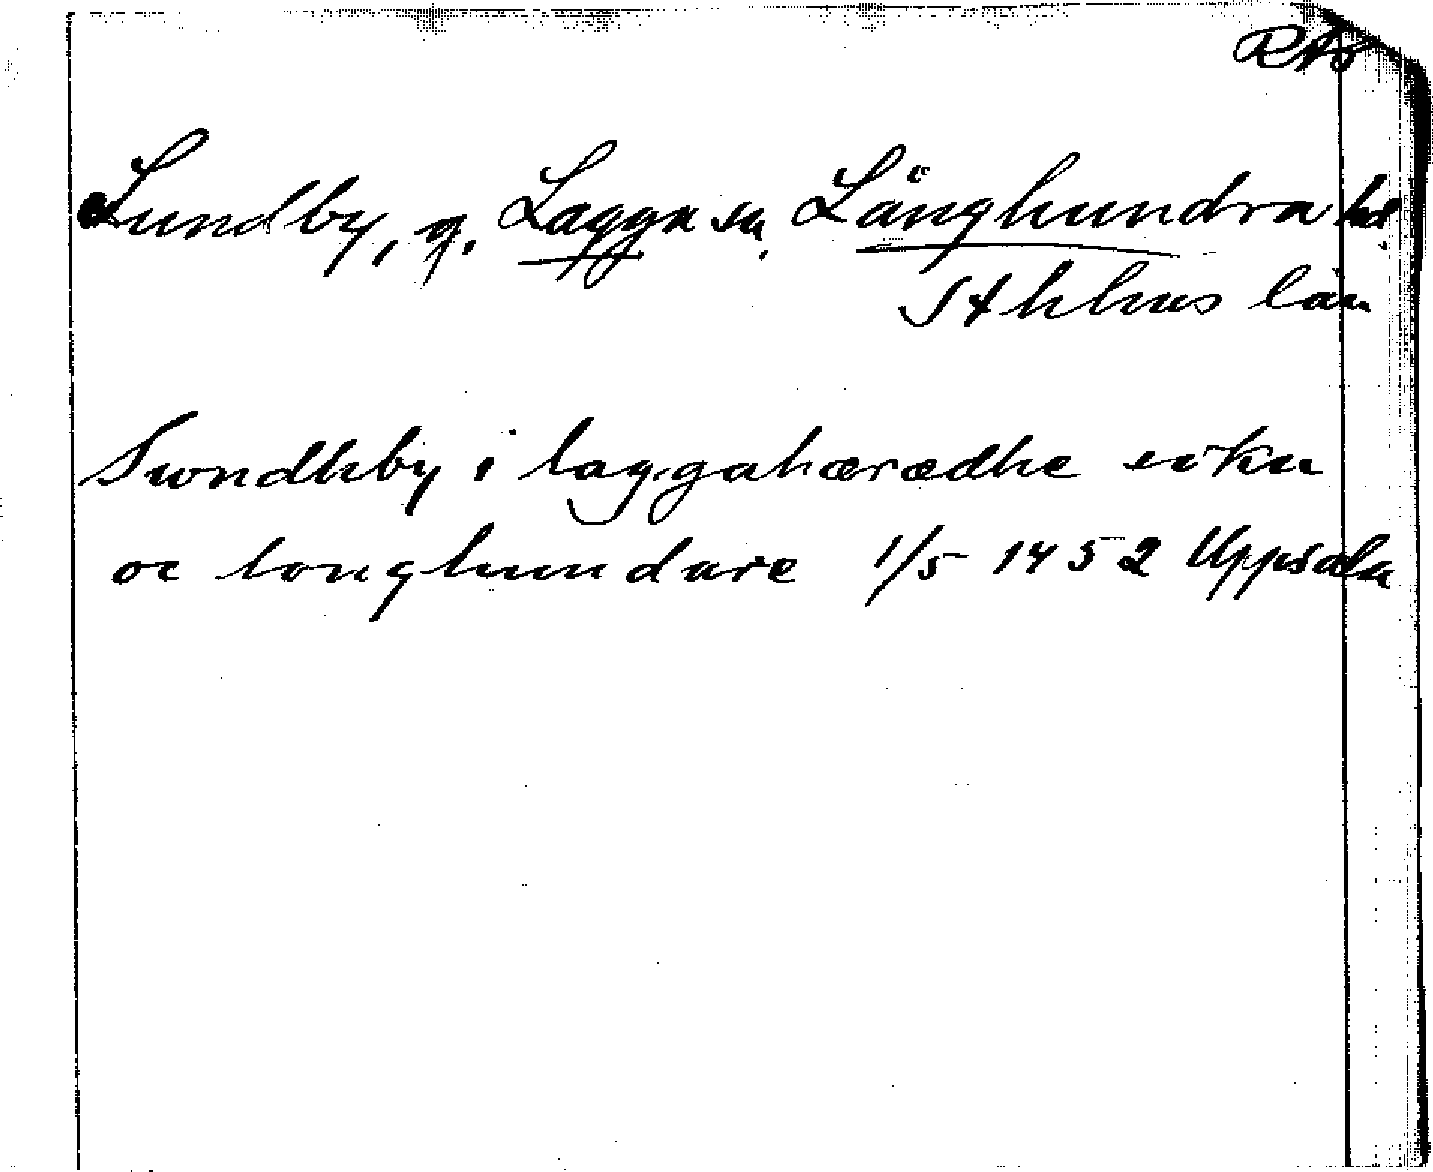 RAp
Sundby, g. Lagga sn, Långhundra hd
Sthlms län
Swndhby i laggahærædhe sokn
oc longhundare 1/5 1452 Uppsala